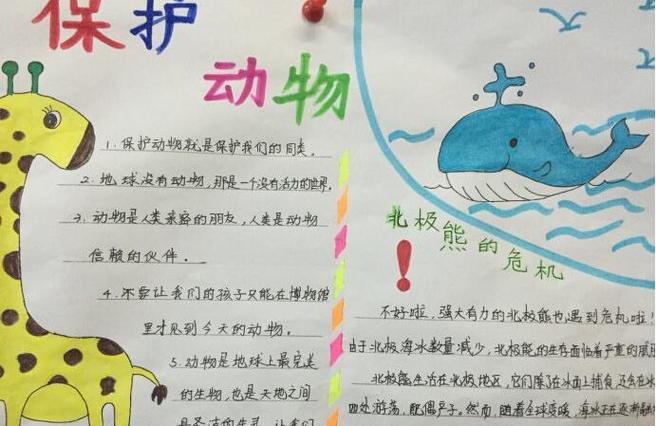 保护
动物！
1.保护动物就是保护我们的同类。
2.地球没有动物，那是一个没有活力的世界。
3.动物是人类亲密的朋友，人类是动物
信赖的伙伴。
4.不要让我们的孩子只能在博物馆
里才见到今天的动物。
5.动物是地球上最完美
的生物，也是天地之间
最圣洁的生灵，让我们
北极熊的危机
！
不好啦，强大有力的北极熊也遇到危机啦！
由于北极海冰数量减少，北极熊的生存面临着严重的威胁
北极熊生活在北极地区，它们除了在冰面上捕食，还会在冰
四处游荡，配偶产子。然而，随着全球变暖，海冰正在逐渐融